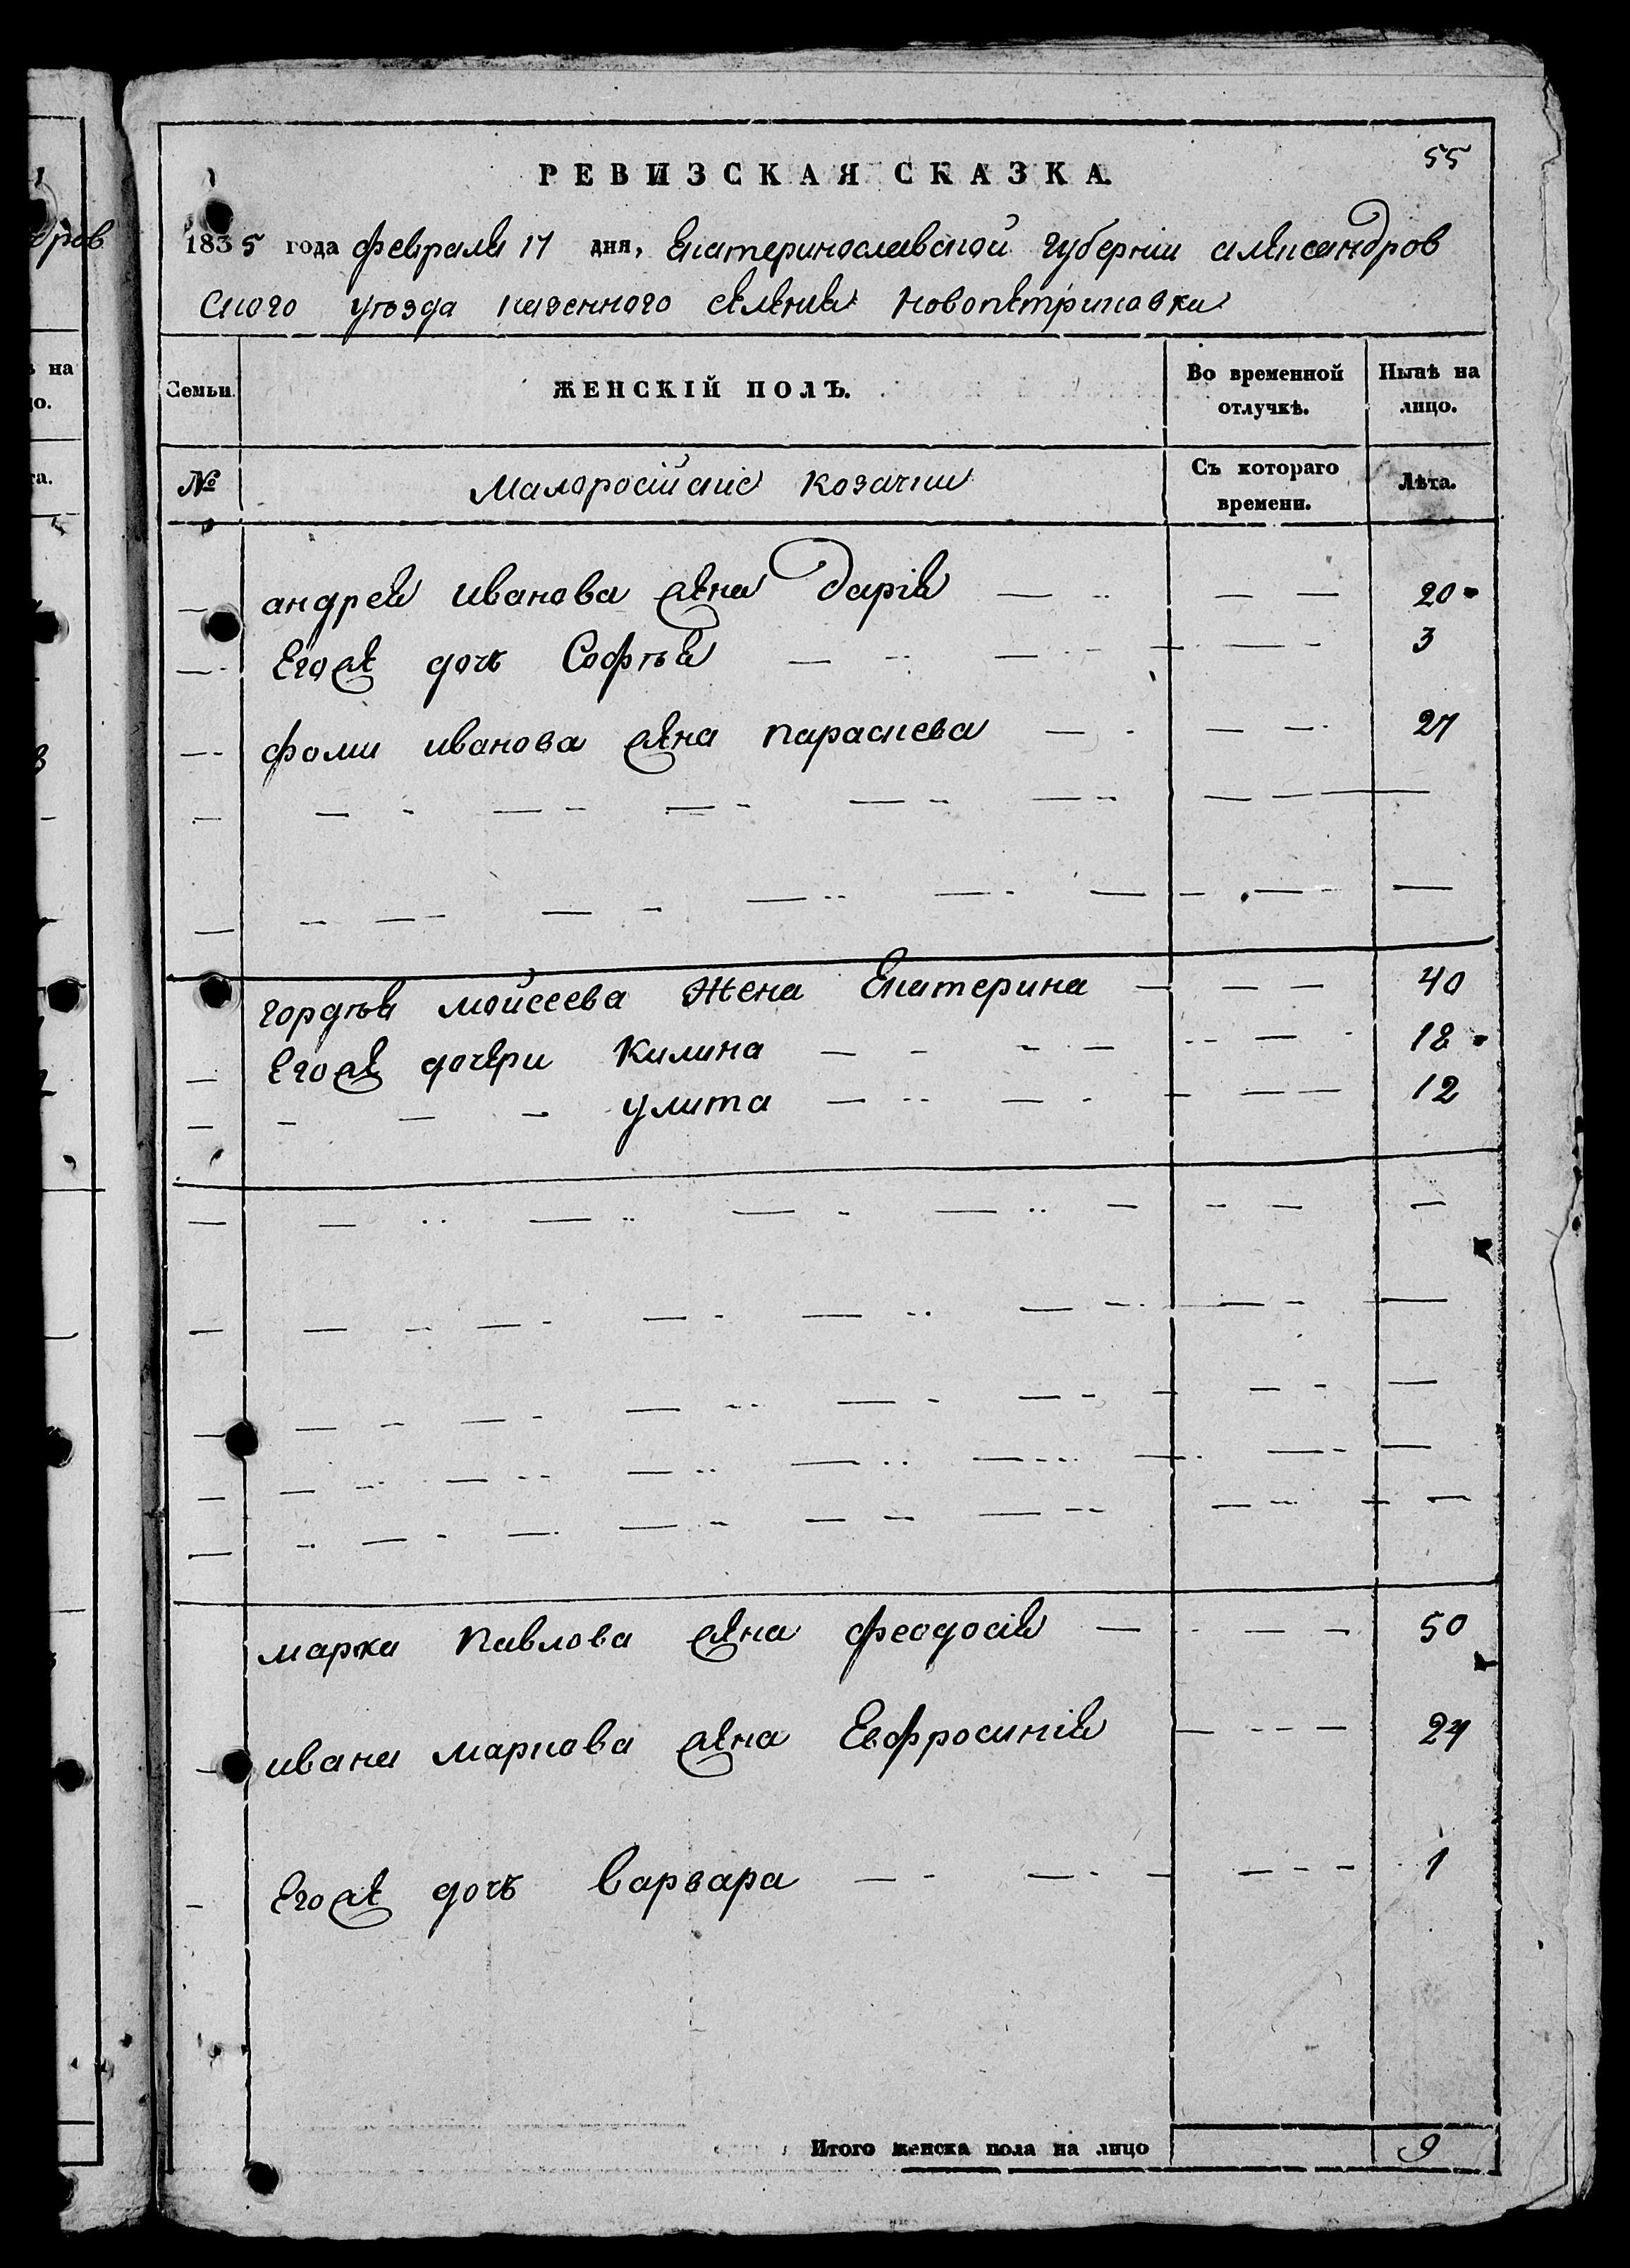 55
РЕВИЗСКАЯ СКАЗКА.
1835 года февраля 17 дня, Екатеринославской губернии александров
ского уѣзда казенного селения Новопетриковки
Семьи. ЖЕНСКІЙ ПОЛЪ. Во временной отлучкѣ. Нынѣ на лицо.
№ Малоросійские Козачки Съ котораго времени. Лѣта.
андрея иванова жена дарія 20
Егоже дочь Софѣя 3
фомы иванова жена параскева 27
гордѣя мойсеева жена Екатерина 40
Егоже дочери Килина 18
улита 12
марка Павлова жена феодосія 50
ивана маркова жена Евфросинія 24
Егоже дочь варвара 1
Итого женска пола на лицо 9